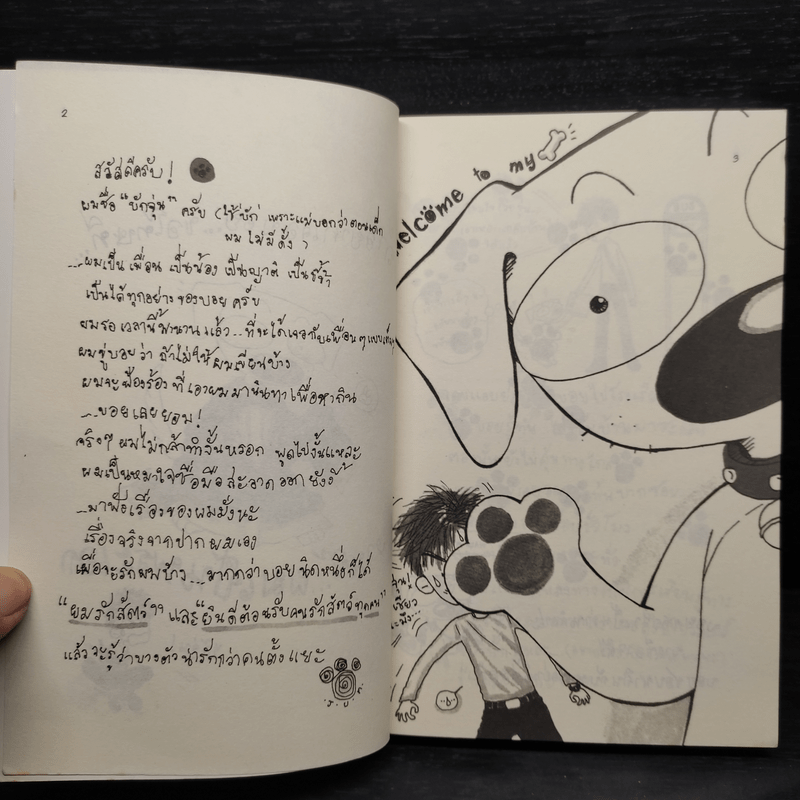 2
สวัสดีครับ!
ผมชื่อ "บักจุ่น" ครับ (ใช้ "บัก" เพราะแม่บอกว่าตอนเด็ก
ผมไม่มีดั้ง)
...ผมเป็นเพื่อน เป็นน้อง เป็นญาติ เป็นขี้ข้า
เป็นได้ทุกอย่างของบอยครับ
ผมรอเวลานี้มานานแล้ว...ที่จะได้เจอกับเพื่อนๆแบบ
ผมขู่บอยว่า ถ้าไม่ให้ผมเขียนบ้าง
ผมจะฟ้องร้องที่เอาผมมานินทาเพื่อหากิน
...บอยเลยยอม!
จริงๆผมไม่กล้าทำงั้นหรอก พูดไปงั้นแหละ
ผมเป็นหมาใจซื่อมือสะอาดออกยังงี้
...มาฟังเรื่องของผมมั่งนะ
เรื่องจริงจากปากผมเอง
เผื่อจะรักผมบ้าง...มากกว่าบอยนิดหนึ่งก็ได้
"ผมรักสัตว์" และ "ยินดีต้อนรับคนรักสัตว์ทุกคน"
แล้วจะรู้ว่าบางตัวน่ารักกว่าคนตั้งแยะ
3
welcome to my
จุ่น!